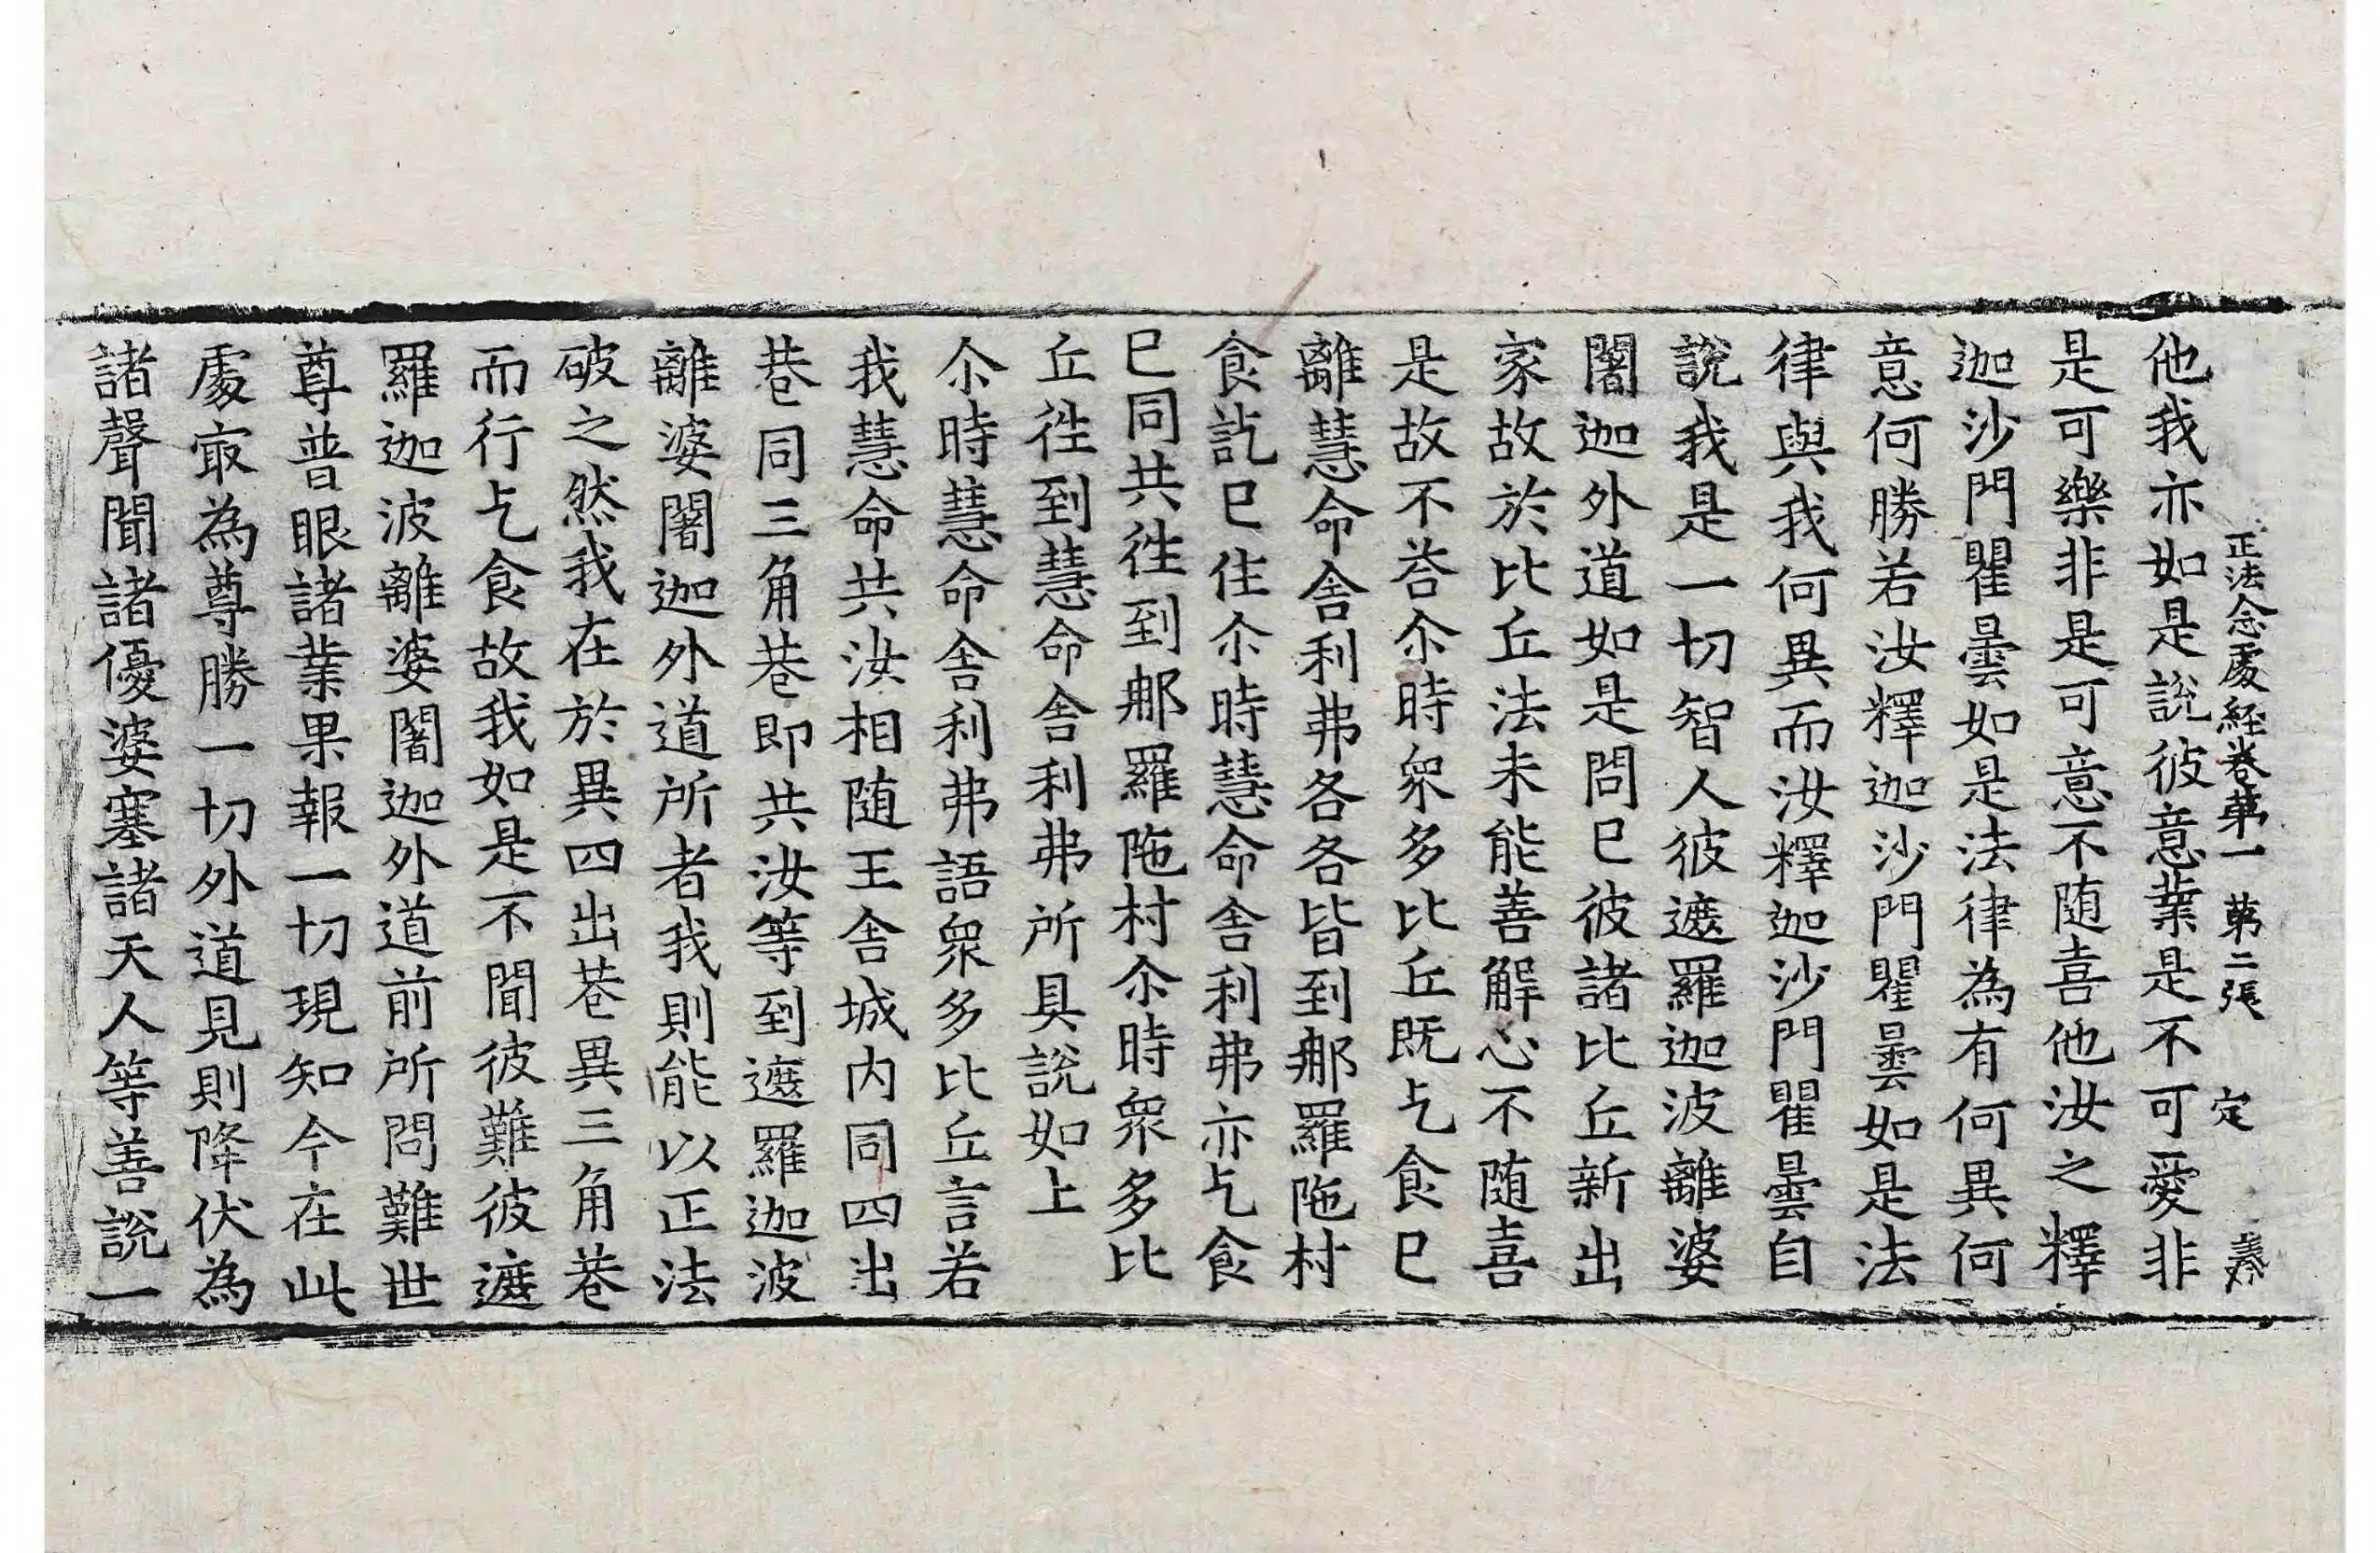 正法念處経卷苐一 苐二張 定
他我亦如是說彼意業是不可愛非
是可樂非是可意不随喜他汝之釋
迦沙門瞿曇如是法律為有何異何
意何勝若汝釋迦沙門瞿曇如是法
律與我何異而汝釋迦沙門瞿曇自
說我是一切智人彼遮羅迦波離婆
闍迦外道如是問已彼諸比丘新出
家故於比丘法未能善解心不随喜
是故不荅尒時衆多比丘既乞食已
離慧命舍利弗各各皆到郍羅陁村
食訖已住尒時慧命舍利弗亦乞食
已同共徃到郍羅陁村尒時衆多比
丘徃到慧命舍利弗所具說如上
尒時慧命舍利弗語衆多比丘言若
我慧命共汝相随王舍城内同四出
巷同三角巷即共汝等到遮羅迦波
離婆闍迦外道所者我則能以正法
破之然我在於異四出巷異三角巷
而行乞食故我如是不聞彼難彼遮
羅迦波離婆闍迦外道前所問難世
尊普眼諸業果報一切現知今在此
處㝡為尊勝一切外道見則降伏為
諸聲聞諸優婆塞諸天人等善說一